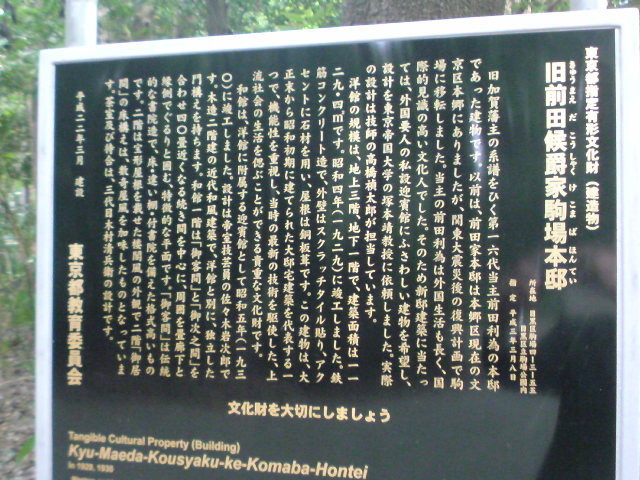 東京都指定有形文化財（建造物）
きゅうまえ だ こうしゃく け こま ば ほんてい
旧前田侯爵家駒場本邸
所在地 目黒区駒場四-三-五五
目黒区駒場公園内
指 定 平成三年三月八日
旧加賀藩主の系譜をひく第一六代当主前田利為の本邸
であった建物です。以前は、前田家本邸は本郷区現在の文
京区本郷にありましたが、関東大震災後の復興計画で駒
場に移転しました。当主の前田利為は外国生活も長く、国
際的見識の高い文化人でした。そのため新邸建築に当たっ
ては、外国要人の私設迎賓館にふさわしい建物を希望し、
設計を東京帝国大学の塚本靖教授に依頼しました。実際
の設計は技師の高橋禎太郎が担当しています。
洋館の規模は、地上三階、地下一階で、建築面積は一一
二九・四㎡です。昭和四年（一九二九）に竣工しました。鉄
筋コンクリート造で、外壁はスクラッチタイル貼り、アク
セントに石材を用い、屋根は銅板葺です。この建物は、大
正末から昭和初期に建てられた大邸宅建築を代表する一
つで、機能性を重視し、当時の最新の技術を駆使した、上
流社会の生活を偲ぶことができる貴重な文化財です。
和館は、洋館に附属する迎賓館として昭和五年（一九三
〇）に竣工しました。設計は帝室技芸員の佐々木岩次郎で
す。木造二階建の近代和風建築で、洋館とは別に、独立した
門構えを持ちます。和館一階は「御客間」と「御次之間」を
合わせ四〇畳近くなる続き間を中心に、周囲を畳廊下と
縁側でぐるりと囲む、特徴的な平面です。「御客間」は伝統
的な書院造で、床・違い棚・付書院を備えた格式高いもの
です。二階は宝形屋根を載せた楼閣風の外観で、二階「御居
間」の床構えは、数寄屋風を加味したものとなっていま
す。茶室及び待合は、三代目木村清兵衛の設計です。
平成二二年三月 建設
東京都教育委員会
文化財を大切にしましょう
Tangible Cultural Property (Building)
Kyu-Maeda-Kousyaku-ke-Komaba-Hontei
In 1929, 1930